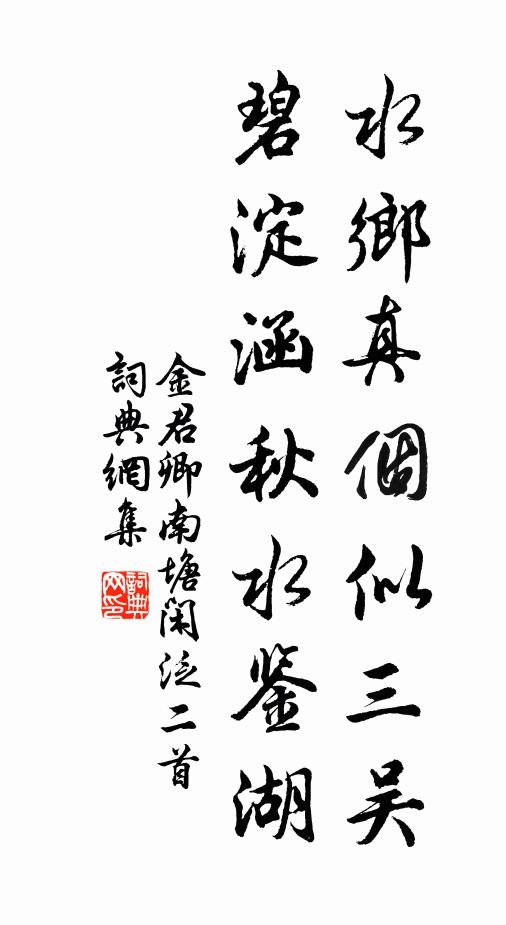 水鄉真個似三吴
碧淀涵秋水鉴湖
金君卿南塘闲泛二首
詞典網集
詞典
网印